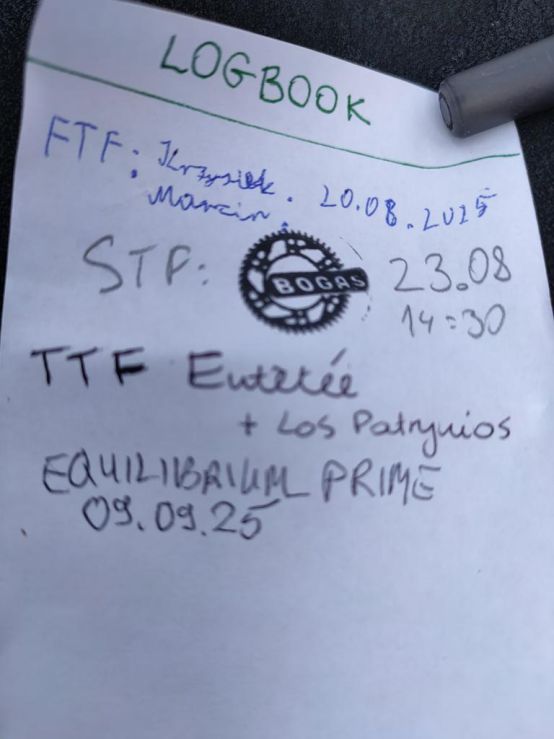 LOGBOOK
FTF: Krzysiek. 20.08.2025
Marcin.
STF: BOGAS 23.08
14:30
TTF
+ Los Patrynios
EQUILIBRIUM PRIME
09.09.25